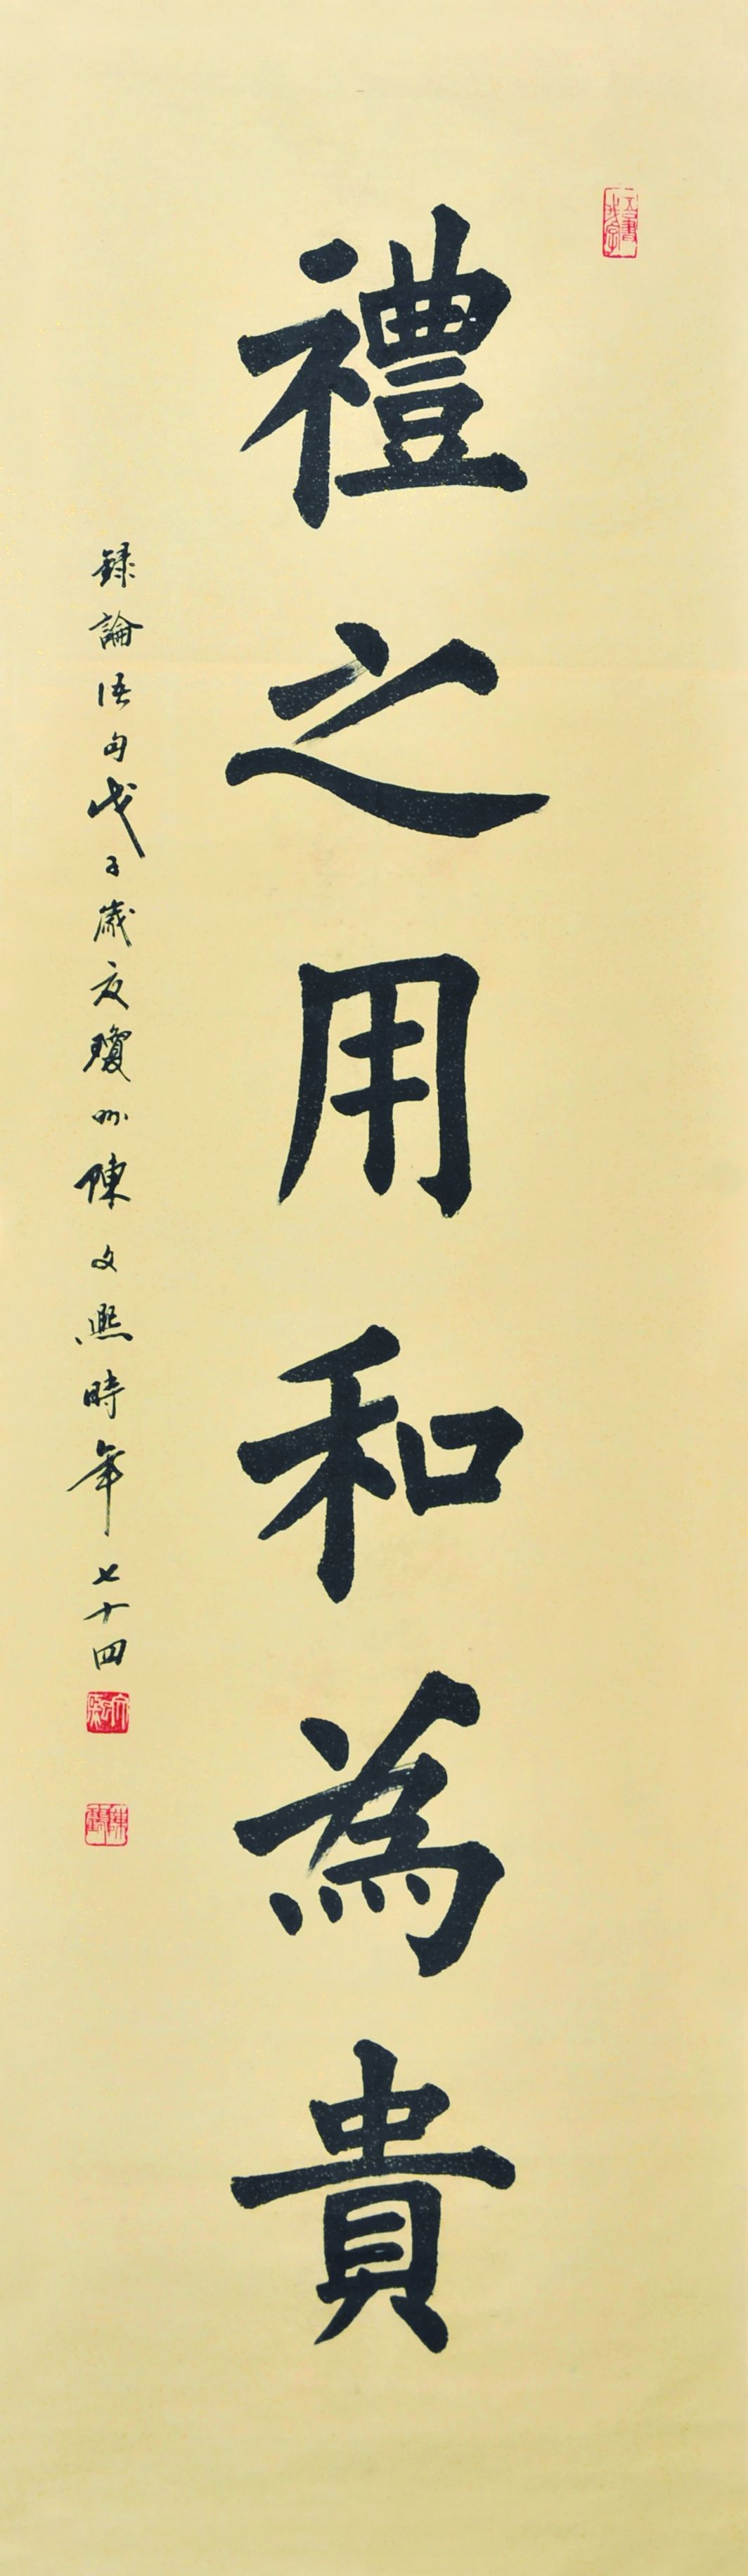 禮之用和為貴
錄論語句戊子歲夏瓊州陳文熙時年七十四